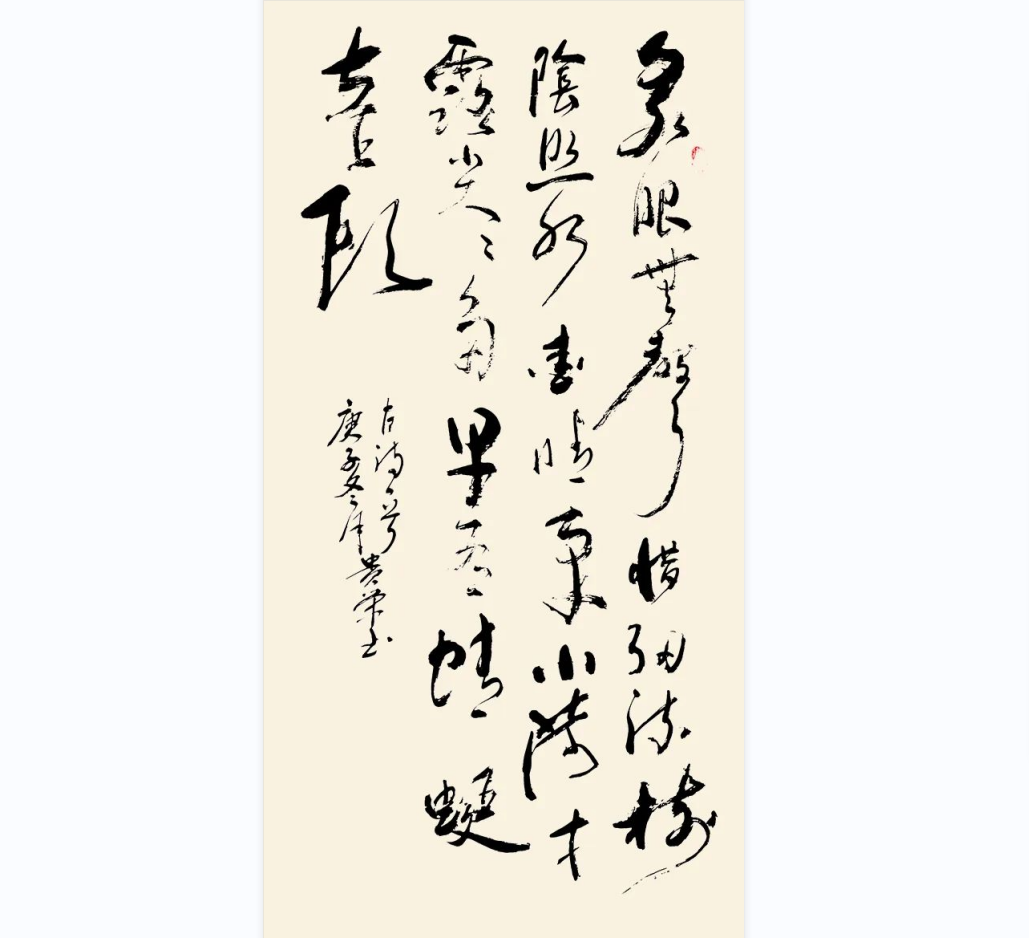 泉眼無聲惜細流樹
陰照水愛晴柔小荷才
露尖尖角早有蜻蜓
立上頭
古詩一首
庚子冬月贵荣书